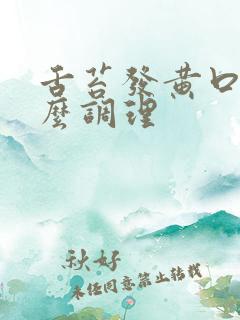 舌苔發黃口
麼調理
秋好
未经同意禁止转载